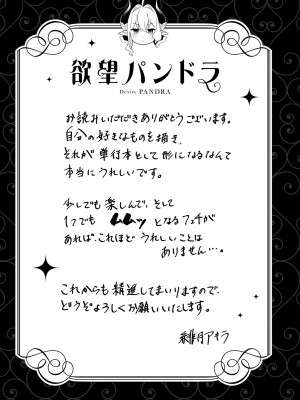 欲望パンドラ
Desire PANDRA
お読みいただきありがとうございます。
自分の好きなものを描き、
それが単行本として形になるなんて
本当にうれしいです。
少しでも楽しんで、そして
1つでも ムムッ となるフェチが
あれば、これほど うれしいことは
ありません…。
これからも精進してまいりますので、
どうぞよろしくお願いいたします。
月アキラ